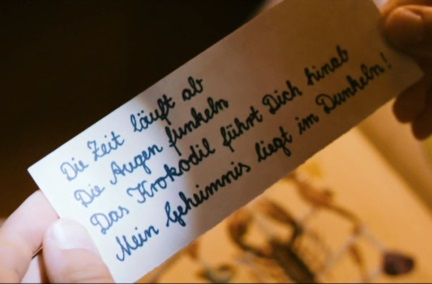 Die Zeit läuft ab
Die Augen funkeln
Das Krokodil führt Dich hinab
Mein Geheimnis liegt im Dunkeln!